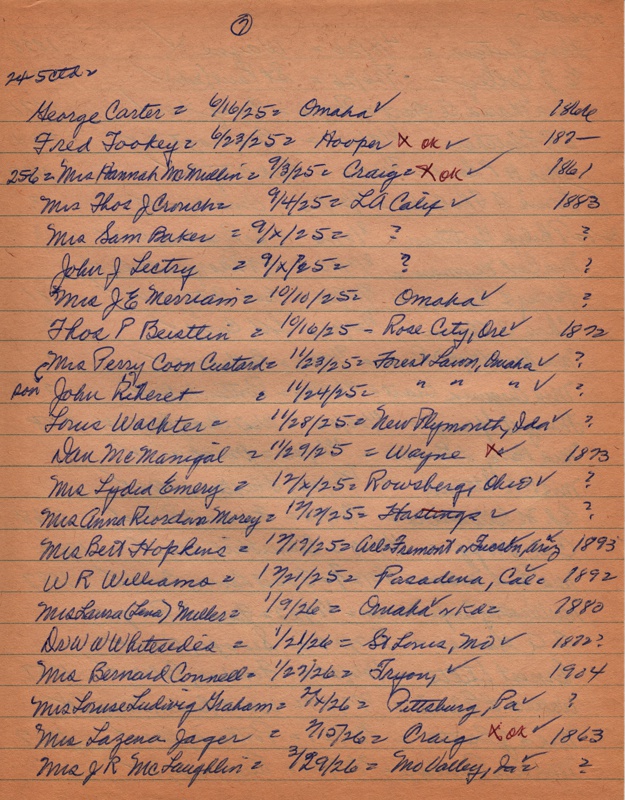 7
245 ctd =
George Carter = 6/16/25 = Omaha ✓ 1866
Fred Tookey = 6/23/25 = Hooper X OK ✓ 187-
256 = Mrs Hannah McMullin = 9/3/25 = Craig = X OK ✓ 1861
Mrs Thos J Crouch = 9/4/25 = LA Calif ✓ 1883
Mrs Sam Baker = 9/x/25 = ? ?
John J Lectry = 9/x/25 = ? ?
Mrs J E Merriam = 10/10/25 = Omaha ✓ ?
Thos P Beistlin = 10/16/25 - Rose City, Ore ✓ 1872
Mrs Perry Coon Custard = 11/23/25 = Forest Lawn, Omaha ✓ ?
son John Riheret = 11/24/25 = " " " ✓ ?
Louis Wachter = 11/28/25 = New Plymouth, Ida ✓ ?
Dan McManigal = 11/29/25 = Wayne X ✓ 1873
Mrs Lydia Emery = 12/x/25 = Rowsberg, Ohio ✓ ?
Mrs Anna Riordan Morey = 12/12/25 = Hastings ✓ ?
Mrs Bert Hopkins = 12/19/25 = Fremont or Tucson, Ariz 1893
W R Williams = 12/21/25 = Pasadena, Cal = 1892
Mrs Laura (Lena) Miller = 1/9/26 = Omaha ✓ 1880
Dr W W Whitesides = 1/21/26 = St Louis, Mo ✓ 1872?
Mrs Bernard Connell = 1/27/26 = Tryon, ✓ 1904
Mrs Louise Ludwig Graham = 2/x/26 = Pittsburg, Pa ✓ ?
Mrs Lazena Jager = 2/15/26 = Craig X OK ✓ 1863
Mrs J R McLaughlin = 3/29/26 = Mo Valley, Ia ✓ ?